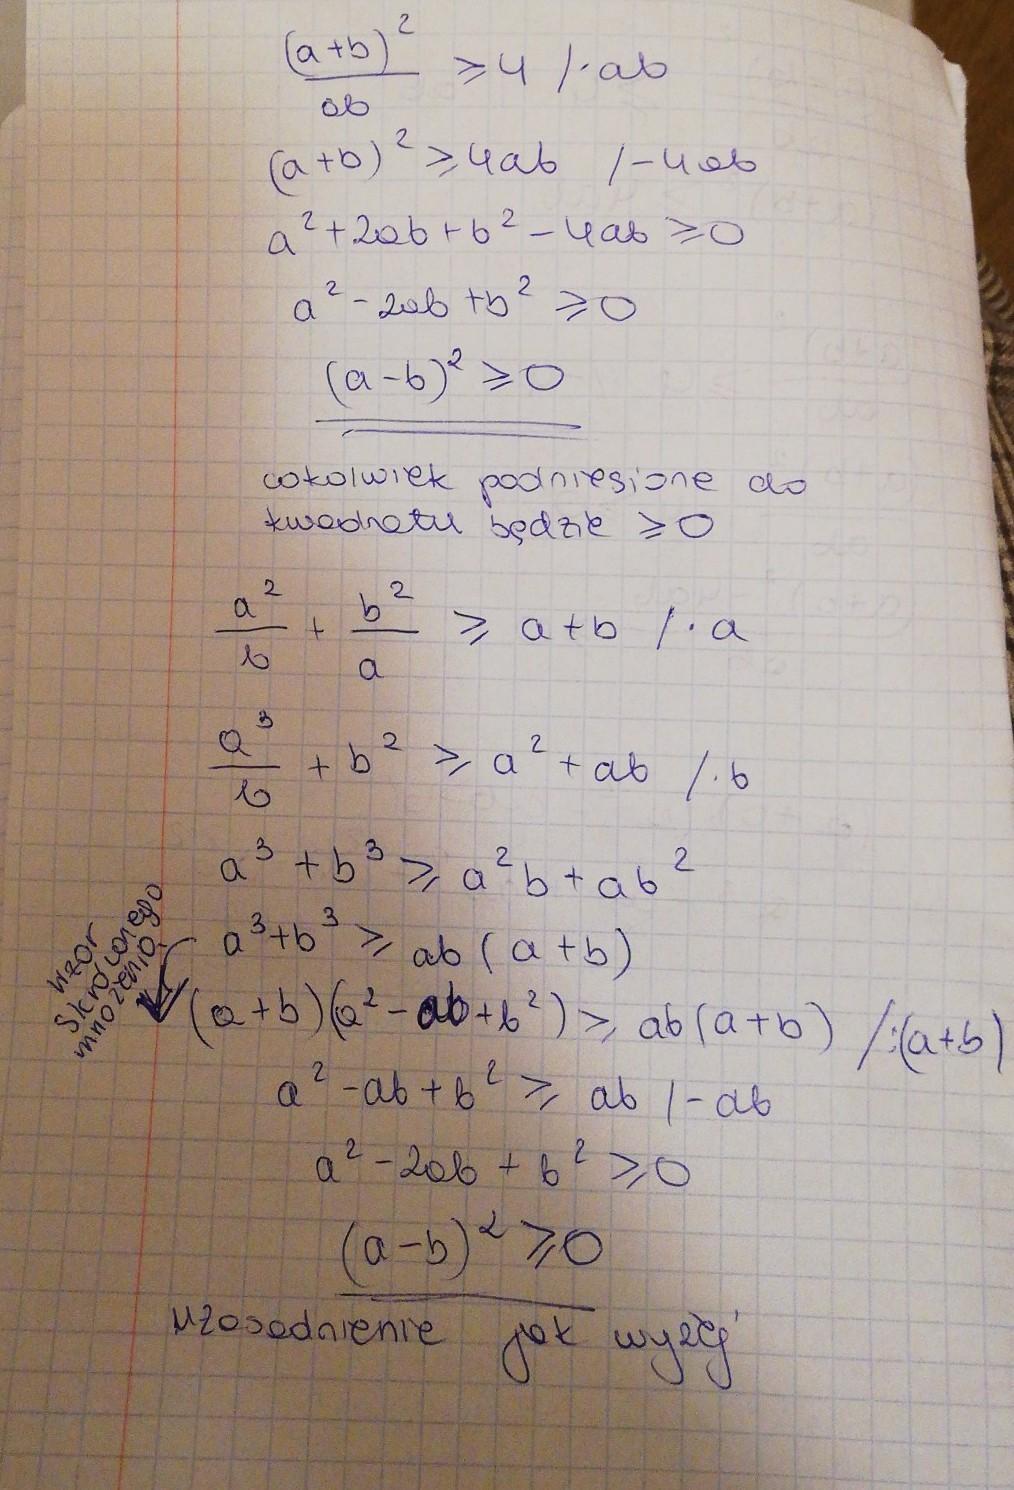 (a+b)²/ab ≥ 4 /·ab
(a+b)² ≥ 4ab /-4ab
a²+2ab+b²-4ab ≥ 0
a²-2ab+b² ≥ 0
(a-b)² ≥ 0
cokolwiek podniesione do
kwadratu będzie ≥ 0
a²/b + b²/a ≥ a+b /·a
a³/b + b² ≥ a²+ab /·b
a³+b³ ≥ a²b+ab²
a³+b³ ≥ ab(a+b)
wzór
skróconego
mnożenia
(a+b)(a²-ab+b²) ≥ ab(a+b) /:(a+b)
a²-ab+b² ≥ ab /-ab
a²-2ab+b² ≥ 0
(a-b)² ≥ 0
uzasadnienie jak wyżej